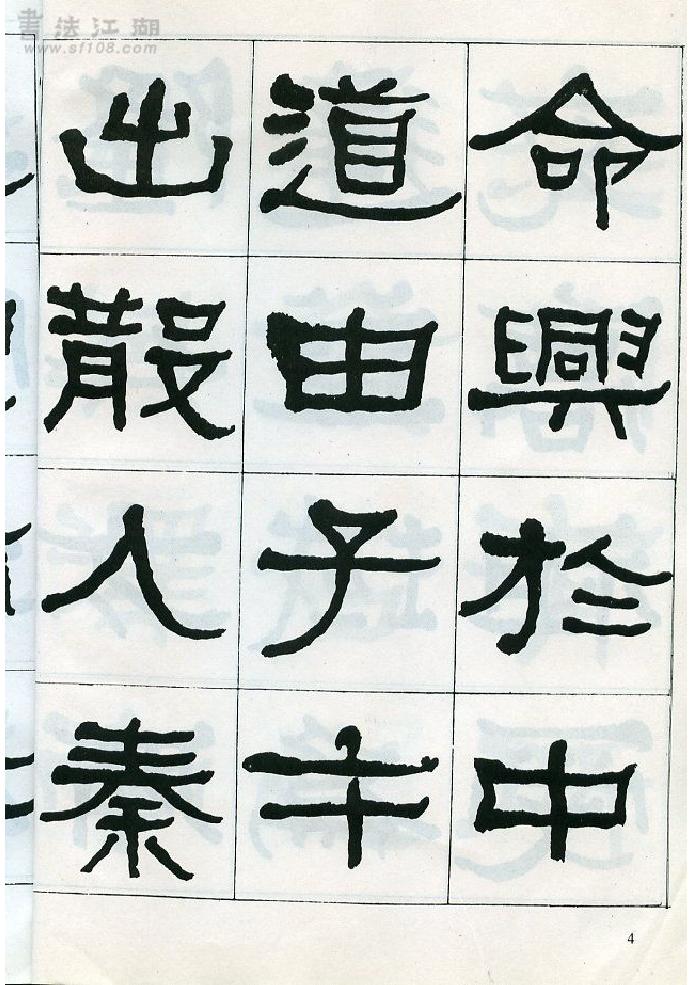 書法江湖
www.sf108.com
命興於中
道由子午
出散入秦
4